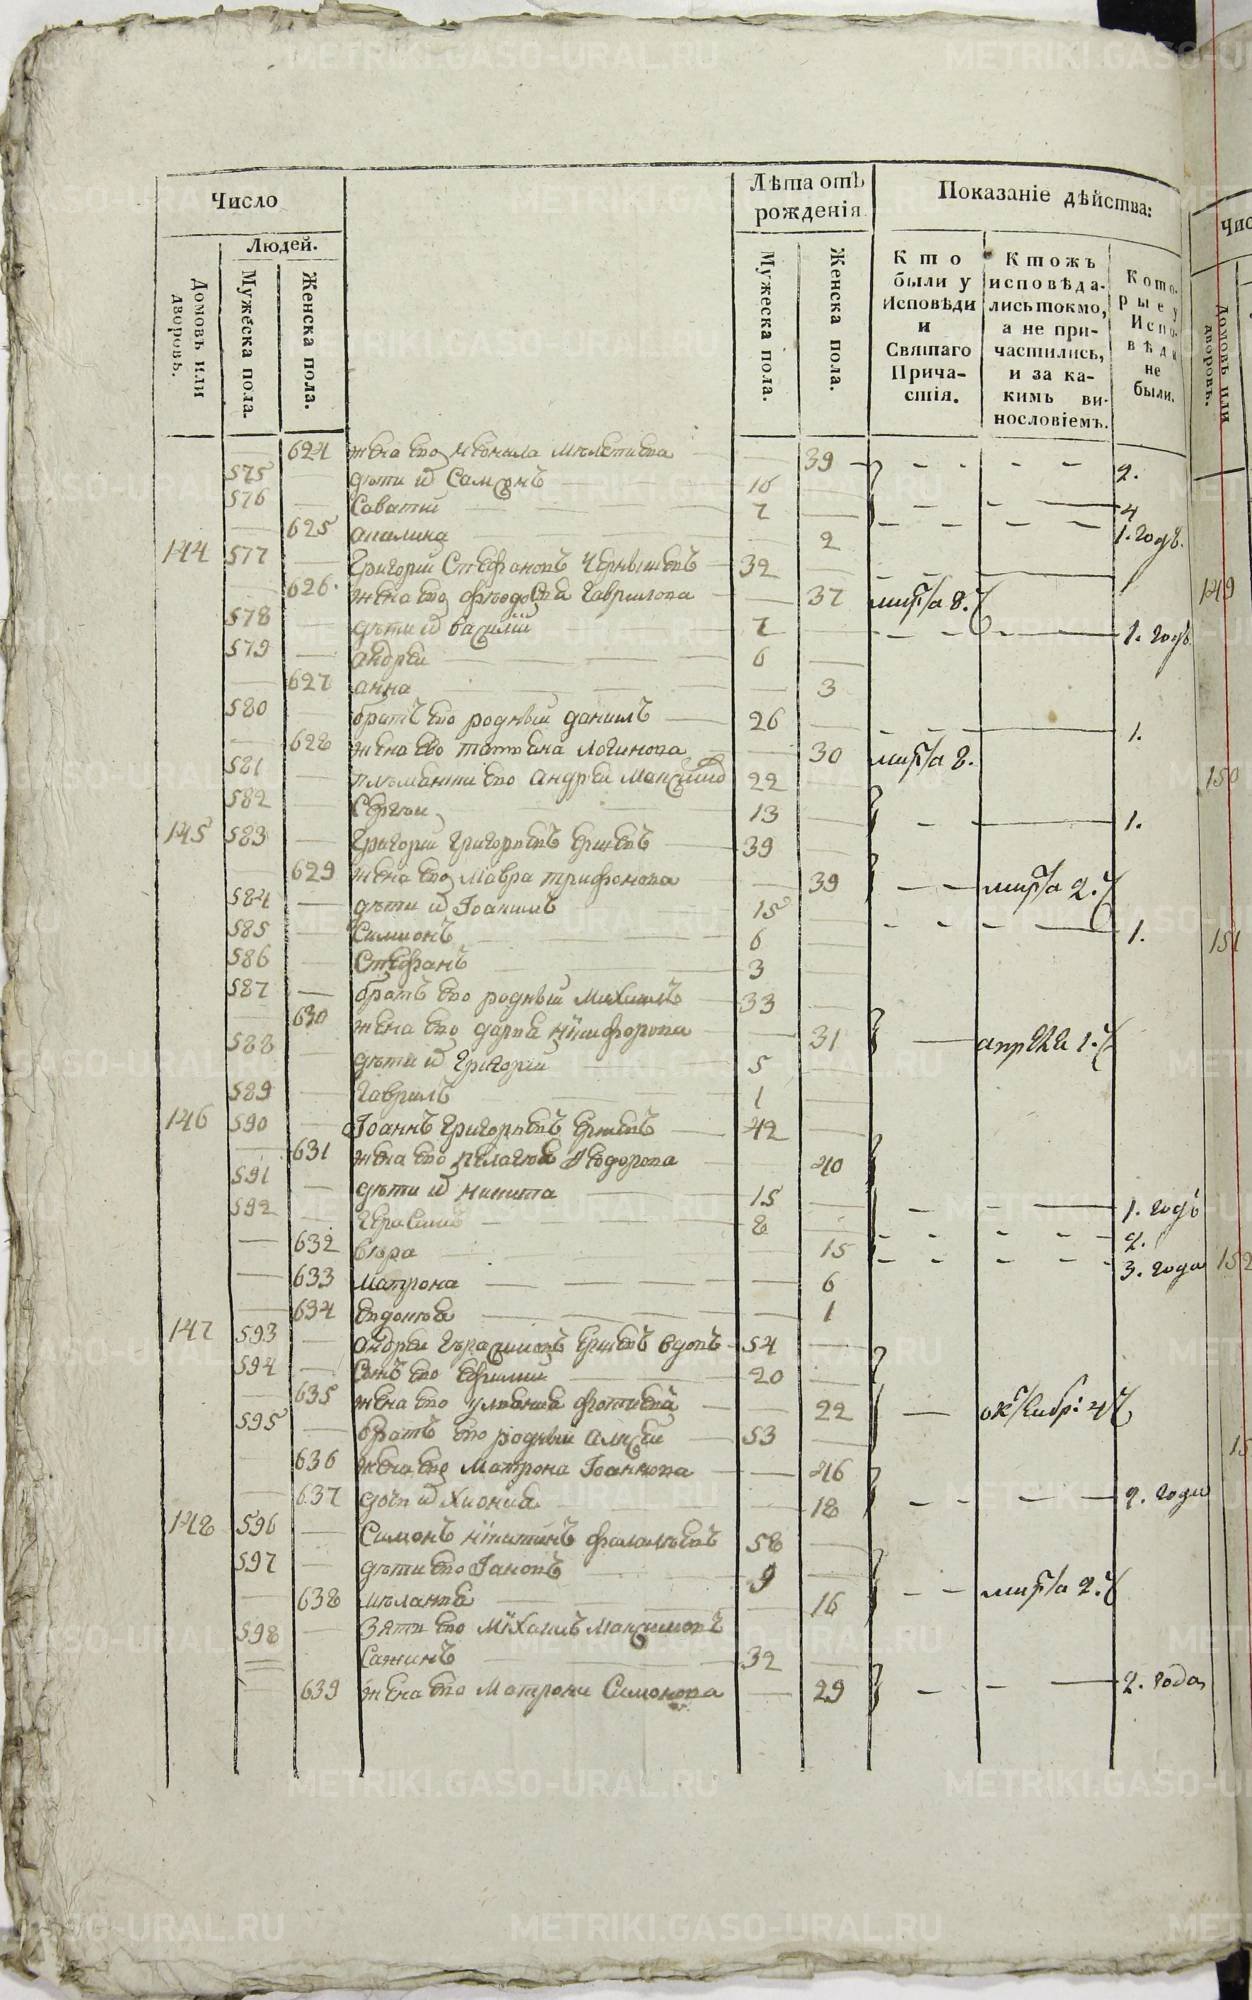 METRIKI.GASO-URAL.RU
Число
Лѣта отъ рожденія
Показаніе дѣйства:
Людей.
Домовъ или дворовъ.
Мужеска пола.
Женска пола.
Мужеска пола.
Женска пола.
Кто были у Исповѣди и Святаго Причастія.
Ктожъ исповѣдались токмо, а не причастились, и за какимъ винословіемъ.
Которые у Исповѣди не были.
624 жена ево 39 2.
575 дѣти и Самсонъ 10
576 Саватий 7 4
625 2 1. годъ.
144 577 Григории Стефановъ Чернышевъ 32
626 жена ево Феодосия Гаврилова 37 марта 8.
578 дѣти и василий 7 1. годъ
579 андреи 6
627 анна 3
580 братъ ево родный данилъ 26 1.
628 жена ево татиана Логинова 30 марта 8.
581 ево андреи 22
582 Сергеи 13 1.
145 583 Григории Григорьевъ 39
629 жена ево Мавра трифонова 39 марта 2.
584 дѣти и 15
585 Симионъ 6 1.
586 Стефанъ 3
587 братъ ево родный Михаилъ 33
630 жена ево дарья никифорова 31 апреля 1.
588 дѣти и Григорий 5
589 Гаврилъ 1
146 590 Іоаннъ Григорьевъ 42
631 жена ево пелагея Феодорова 40
591 дѣти и никита 15 1. годъ
592 Герасимъ 8 2.
632 15 3. года
633 Матрона 6
634 евдокия 1
147 593 вдовъ 54
594 Сынъ ево ефимии 20
635 жена ево улиания 22 4
595 братъ ево родный алексеи 53
636 жена ево Матрона Іоаннова 46
637 дочь и Хиония 18 2. года
148 596 Симонъ 58
597 дѣти ево 9
638 16 марта 2.
598 Зять ево Михаилъ Максимовъ
Сажинъ 32
639 жена ево Матрона Симонова 29 2. года
Чис
Домовъ или дворовъ.
149
150
151
152
15